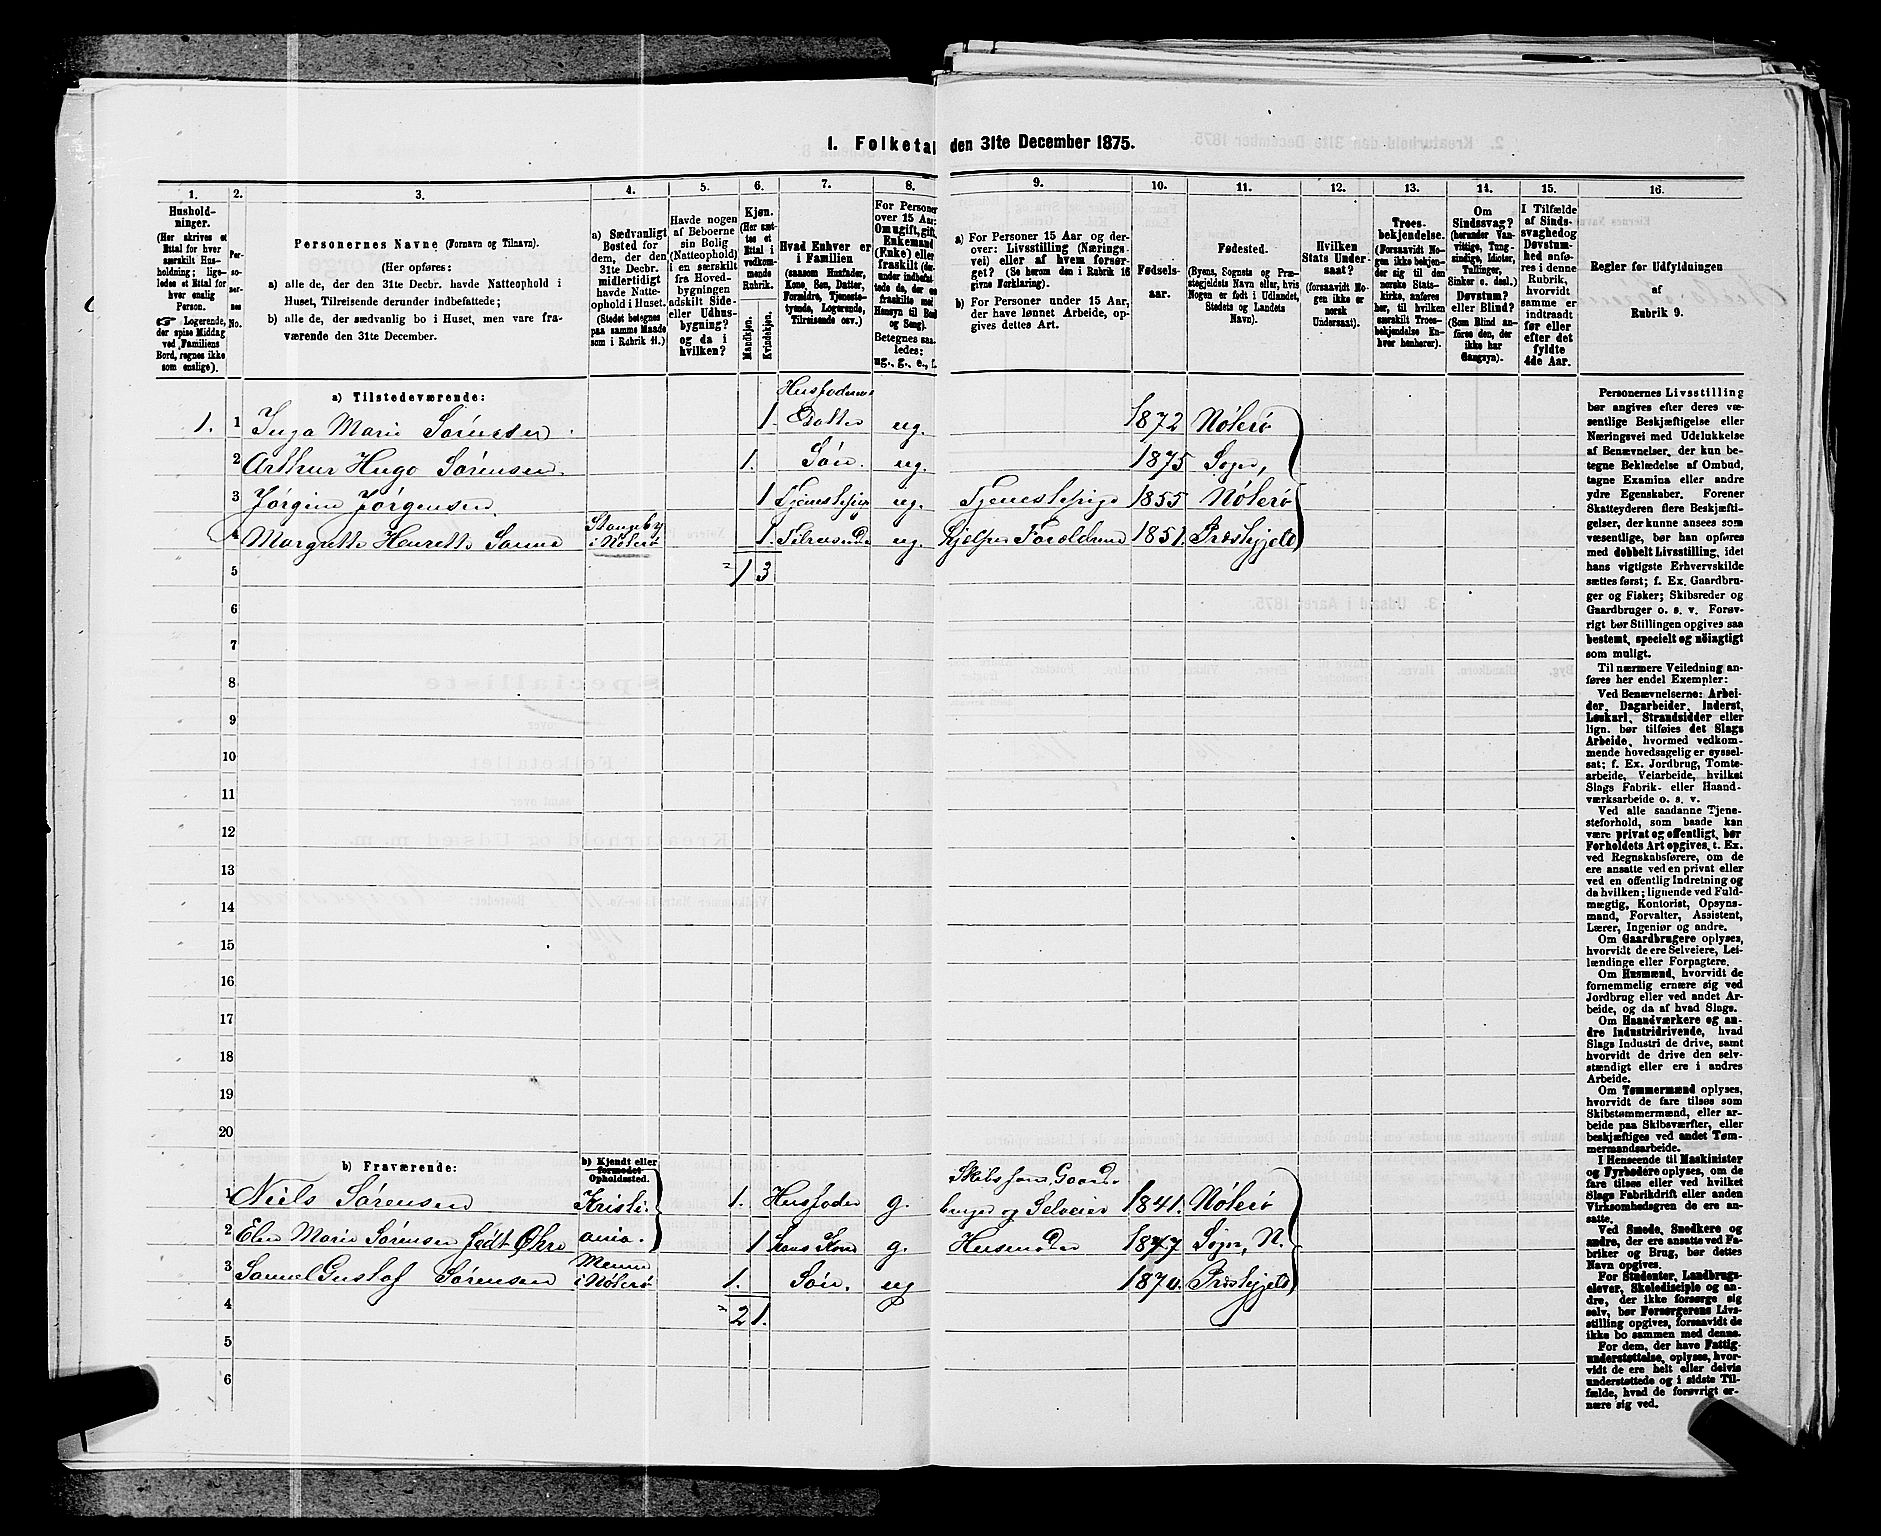 I. Folketal den 31te December 1875.
1. 2. 3. 4. 5. 6. 7. 8. 9. 10. 11. 12. 13. 14. 15. 16.
Husholdninger.
(Her skrives et Ettal for hver særskilt Husholdning; ligeledes et Ettal for hver enslig Person.
☞ Logerende, der spise Middag ved Familiens Bord, regnes ikke som enslige).
Personernes No.
Personernes Navne (Fornavn og Tilnavn).
(Her opføres:
a) alle de, der den 31te Decbr. havde Natteophold i Huset, Tilreisende derunder indbefattede;
b) alle de, der sædvanlig bo i Huset, men vare fraværende den 31te December.
a) Sædvanligt Bosted for dem, der den 31te Decbr. midlertidigt havde Natteophold i Huset. (Stedet betegnes paa samme Maade som i Rubrik 11.)
Havde nogen af Beboerne sin Bolig (Natteophold) i en særskilt fra Hovedbygningen adskilt Side- eller Udhusbygning? og da i hvilken?
Kjøn. (Her sættes et Ettal i vedkommende Rubrik.
Mandkjøn. Kvindekjøn.
Hvad Enhver er i Familien
(saasom Husfader, Kone, Søn, Datter, Forældre, Tjenestetyende, Logerende, Tilreisende osv.)
For Personer over 15 Aar: Om ugift, gift, Enkemand (Enke) eller fraskilt
Betegnes saaledes: ug., g., e., f.
a) For Personer 15 Aar og derover: Livsstilling (Næringsvei) eller af hvem forsørget? (Se herom den i Rubrik 16 givne Forklaring).
b) For Personer under 15 Aar, der have lønnet Arbeide, opgives dettes Art.
Fødselsaar.
Fødested.
(Byens, Sognets og Præstegjeldets Navn eller, hvis Nogen er født i Udlandet, Stedets og Landets Navn).
Hvilken Stats Undersaat?
(forsaavidt Nogen ikke er norsk Undersaat).
Troesbekjendelse.
(Forsaavidt Nogen ikke bekjender sig til den norske Statskirke, anføres her, til hvilken særskilt Troesbekjendelse Enhver henhører).
Om Sindssvag? (herunder Vanvittige, Tungsindige, Idioter, Tullinger, Sinker o. desl.) Døvstum? eller Blind?
(Som Blind anføres den, der ikke har Gangsyn).
I Tilfælde af Sindssvaghed og Døvstumhed anføres i denne Rubrik, hvorvidt samme er indtraadt før eller efter det fyldte 4de Aar.
Regler for Udfyldningen af Rubrik 9.
a) Tilstedeværende:
1. 1 Inga Marie Sørensen 1. Husfaderens Datter ug. 1872 Nøterø
2 Arthur Hugo Sørensen 1. Søn. ug. 1875 Sogn,
3 Jørgine Jørgensen. 1 Tjenestepige ug. Tjenestepige 1855 Nøterø
4 Margrette Henrette Stangeby i Nøterø 1. Tilreisende ug. hjelper Forældrene 1851. Præstgjeld
5 1 3
6
7
8
9
10
11
12
13
14
15
16
17
18
19
20
b) Fraværende:
b) Kjendt eller formodet Opholdssted.
1 Niels Sørensen Kristi- 1. Husfader g. Skibsfører, Gaardbruger og Selveier 1841. Nøterø
2 Marie Sørensen født Øhre ania. 1 hans Kone g. Husmoder 1847 Sogn, N.
3 Samuel Gustaf Sørensen i Nøterø 1. Søn. ug 1870. Præstgjeld
4 2 1.
5
6
Personernes Livsstilling
bør angives efter deres væsentlige
Beskjæftigelse eller
Næringsvei med Udelukkelse
af Benævnelser, der kun betegne
Beklædelse af Ombud,
tagne Examina eller andre
ydre Egenskaber. Forener
Skatteyderen flere Beskjæftigelser,
der kunne ansees som
væsentlige, bør han opføres
med dobbelt Livsstilling, idet
hans vigtigste Erhvervskilde
sættes først; f. Ex. Gaardbruger
og Fisker; Skibsreder og
Gaardbruger o. s. v. Forøvrigt
bør Stillingen opgives saa
bestemt, specielt og nöiagtigt
som muligt.
Til nærmere Veiledning anføres
her endel Exempler:
Ved Benævnelserne: Arbeider,
Dagarbeider, Inderst,
Løskarl, Strandsidder eller
lign. bør tilføies det Slags
Arbeide, hvormed vedkommende
hovedsagelig er sysselsat;
f. Ex. Jordbrug, Tomtearbeide,
Veiarbeide, hvilket
Slags Fabrik- eller Haandværksarbeide
o. s. v.
Ved alle saadanne Tjenesteforhold,
som baade kan
være privat og offentligt, bør
Forholdets Art opgives, t. Ex.
ved Regnskabsførere, om de
ere ansatte ved en privat eller
ved en offentlig Indretning og
da hvilken; lignende ved Fuldmægtig,
Kontorist, Opsynsmand,
Forvalter, Assistent,
Lærer, Ingeniør og andre.
Om Gaardbrugere oplyses,
hvorvidt de ere Selveiere, Leilændinge
eller Forpagtere.
Om Husmænd, hvorvidt de
fornemmelig ernære sig ved
Jordbrug eller ved andet Arbeide,
og da af hvad Slags.
Om Haandværkere og andre
Industridrivende, hvad
Slags Industri de drive, samt
hvorvidt de drive den selvstændigt
eller ere i andres
Arbeide.
Om Tømmermænd oplyses,
hvorvidt de fare tilsøs som
Skibstømmermænd, eller arbeide
paa Skibsværfter, eller
beskjæftiges ved andet Tømmermandsarbeide.
I Henseende til Maskinister
og Fyrbødere oplyses, om de
fare tilsøs eller ved hvilket
Slags Fabrikdrift eller anden
Virksomhedsgren de ere ansatte.
Ved Smede, Snedkere og
andre, der ere ansatte ved Fabriker
og Brug, bør dettes
Navn opgives.
For Studenter, Landbrugselever,
Skoledisciple og andre,
der ikke forsørge sig
selv, bør Forsørgerens Livsstilling
opgives, forsaavidt de
ikke bo sammen med denne.
For dem, der have Fattigunderstøttelse,
oplyses, hvorvidt
de ere helt eller delvis
understøttede og i sidste Tilfælde,
hvad de forøvrigt ernære
sig ved.